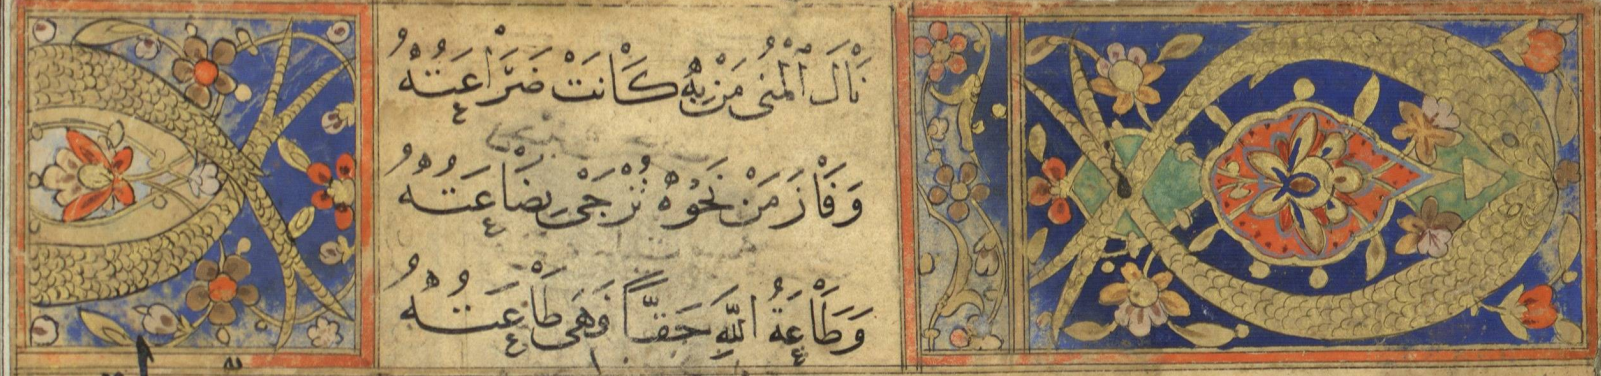 نَالَ ٱلْمُنَى مَنْ بِهِ كَانَتْ ضَرَاعَتُهُ
وَفَازَ مَنْ نَحْوَهُ تُزْجَى بِضَاعَتُهُ
وَطَاعَةُ اللَّهِ حَقًّا وَهِيَ طَاعَتُهُ